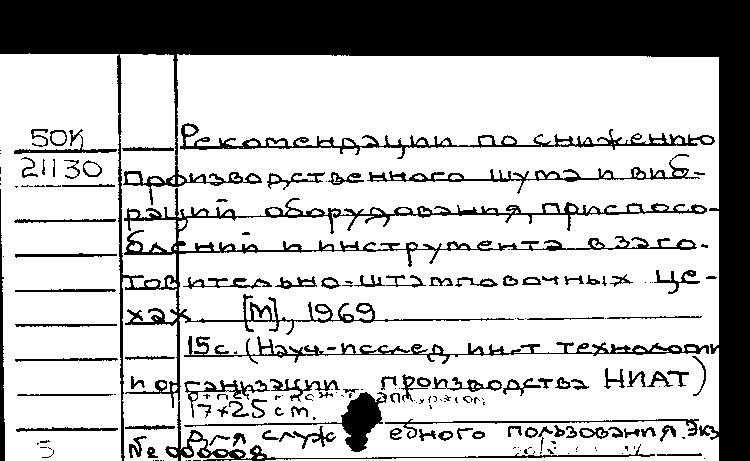 50К
21130
Рекомендации по снижению
производственного шума и виб-
раций оборудования, приспосо-
блений и инструмента в заго-
товительно-штамповочных це-
хах. [М]., 1969
15с. (Науч-исслед. ин-т технологии
и организации производства НИАТ)
17×25 cm.
Для служебного пользования. Экз
5 № 000008